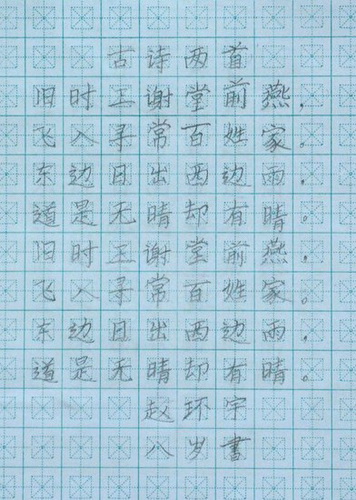 古诗两首
旧时王谢堂前燕，
飞入寻常百姓家。
东边日出西边雨，
道是无晴却有晴。
旧时王谢堂前燕，
飞入寻常百姓家。
东边日出西边雨，
道是无晴却有晴。
赵环宇
八岁書